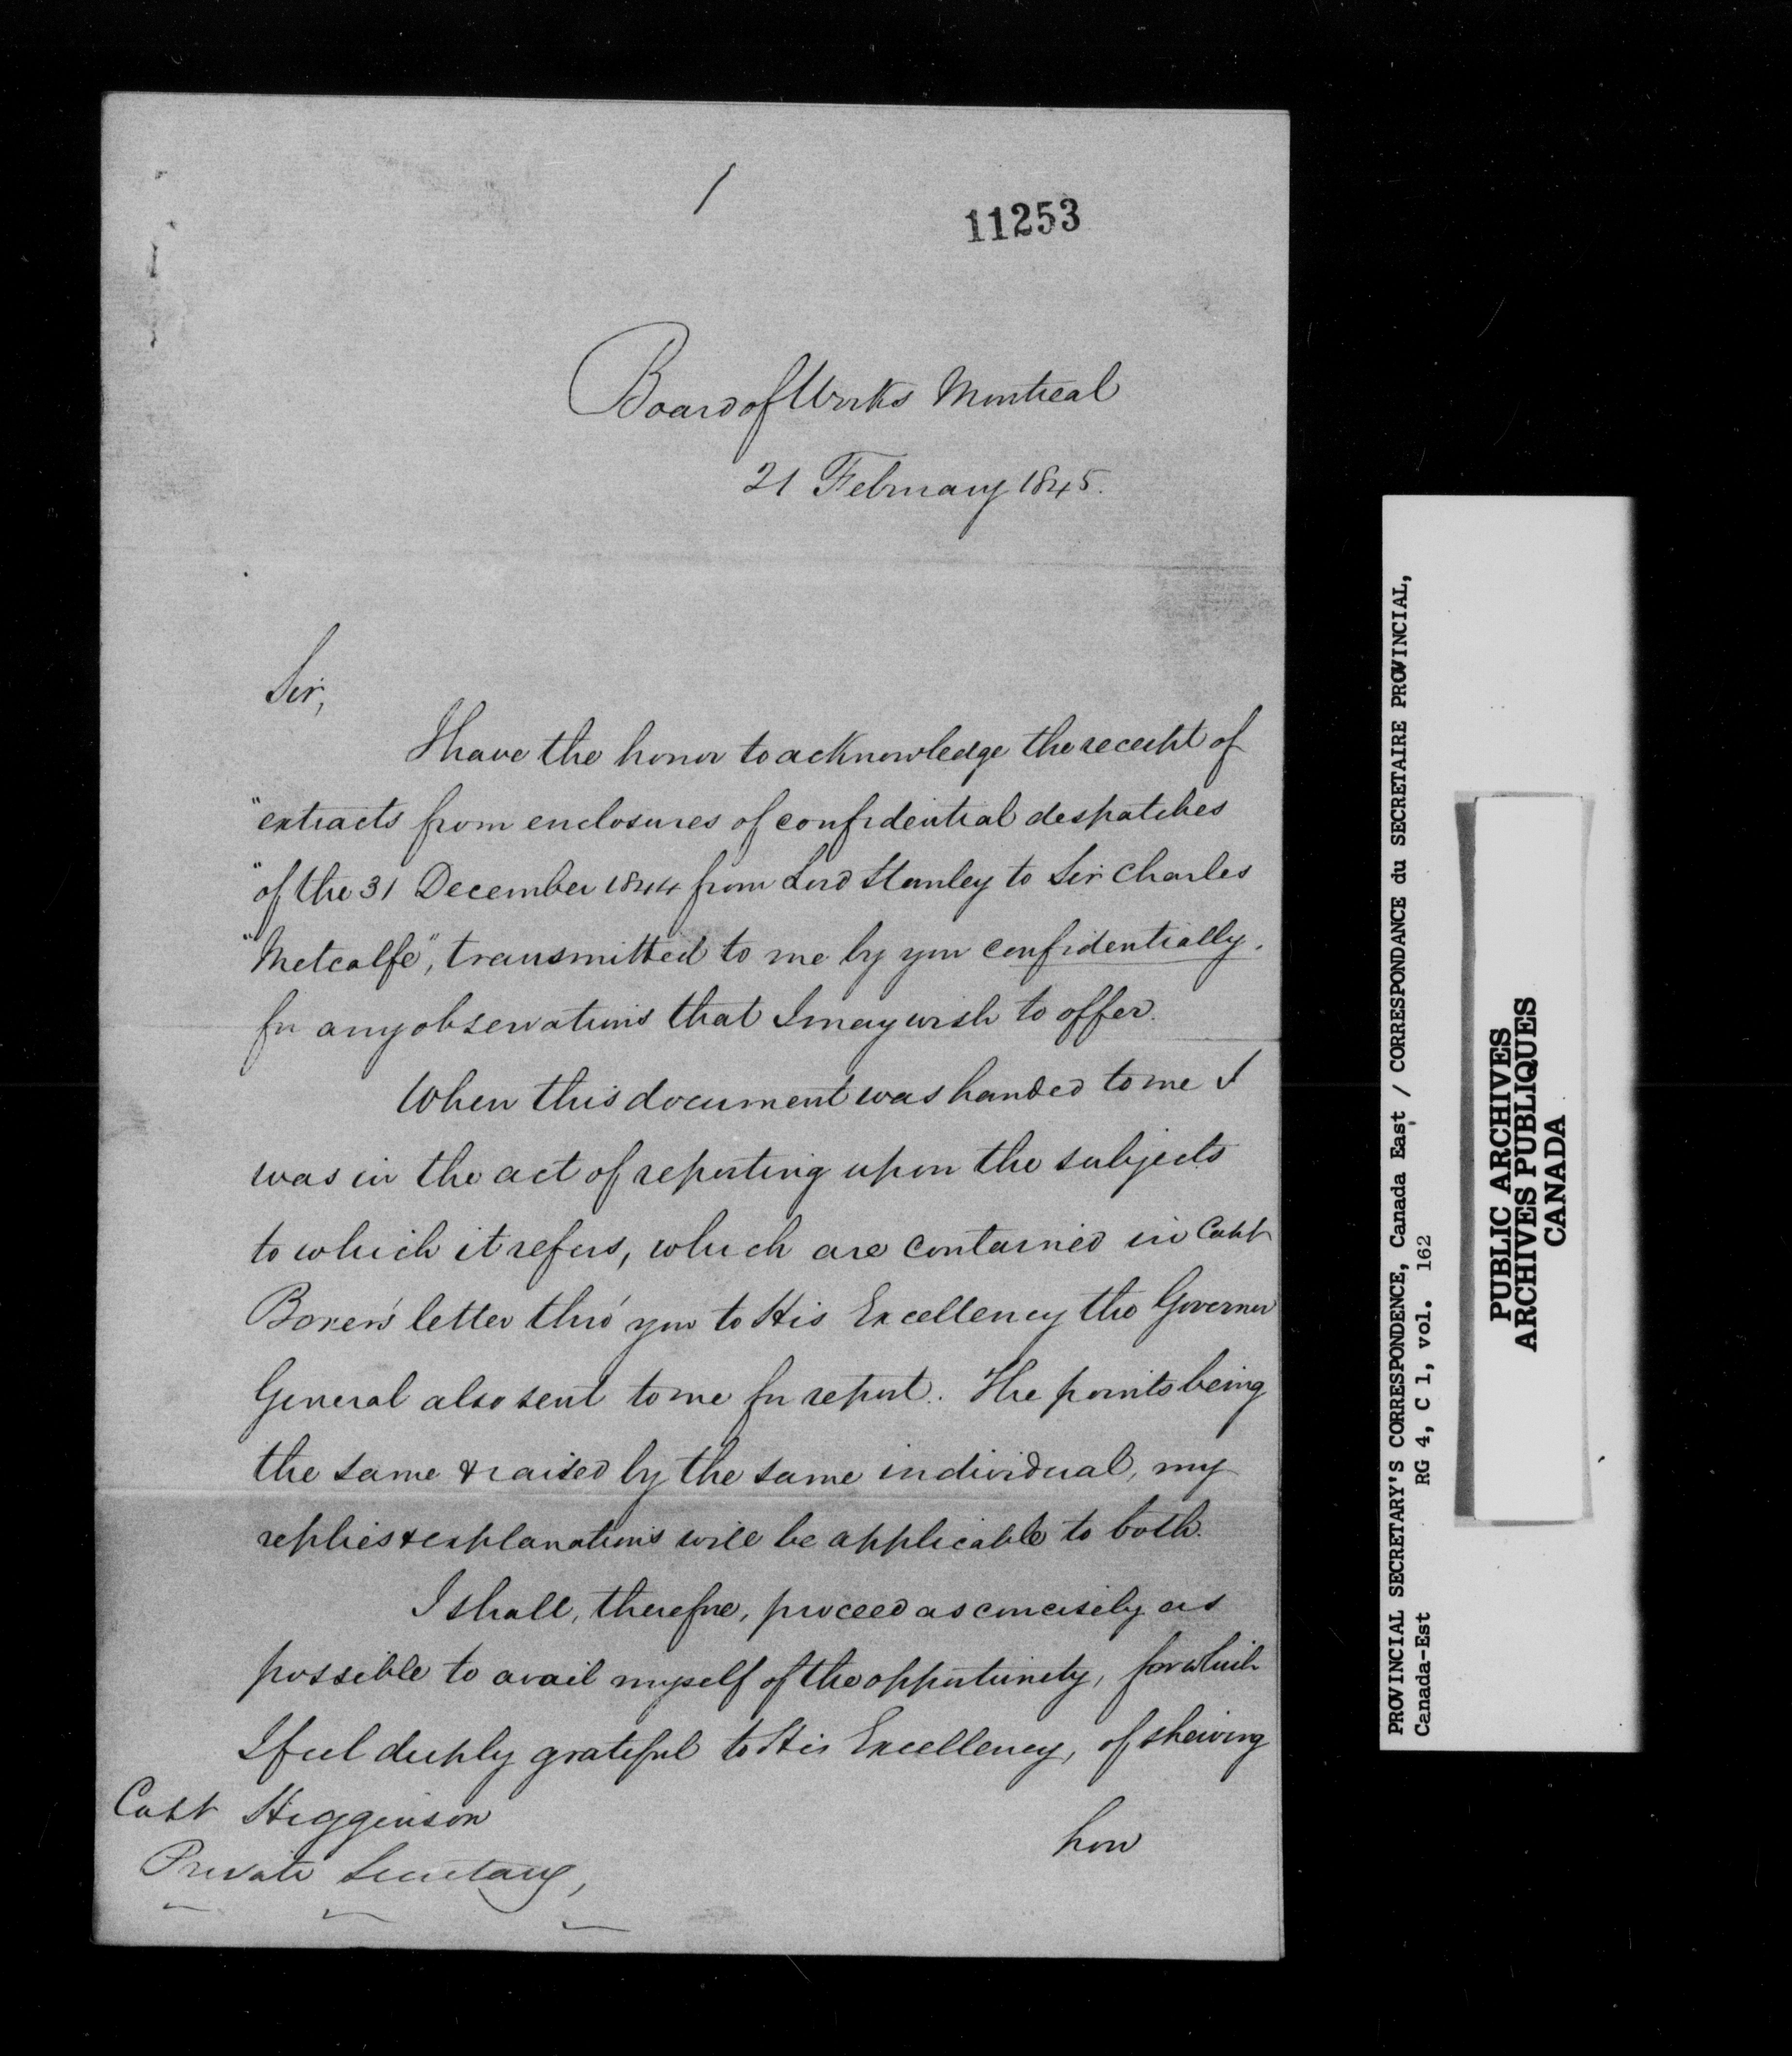 1
11253
Board of Works Montreal
21 February 1845.
Sir,
I have the honor to acknowledge the receipt of
"extracts from enclosures of confidential despatches
"of the 31 December 1844 from Lord Stanley to Sir Charles
"Metcalfe", transmitted to me by you confidentially.
for any observations that I may wish to offer.
When this document was handed to me I
was in the act of reporting upon the subjects
to which it refers, which are contained in Capt
Boxer's letter thro' you to His Excellency the Governor
General also sent to me for report. The points being
the same & raised by the same individual, my
replies & explanations will be applicable to both.
I shall, therefore, proceed as concisely as
possible to avail myself of the opportunity, for which
I feel deeply grateful to His Excellency, of shewing
how
Capt Higginson
Private Secretary,
PROVINCIAL SECRETARY'S CORRESPONDENCE, Canada East / CORRESPONDANCE du SECRETAIRE PROVINCIAL,
Canada-Est RG 4, C 1, vol. 162
PUBLIC ARCHIVES
ARCHIVES PUBLIQUES
CANADA